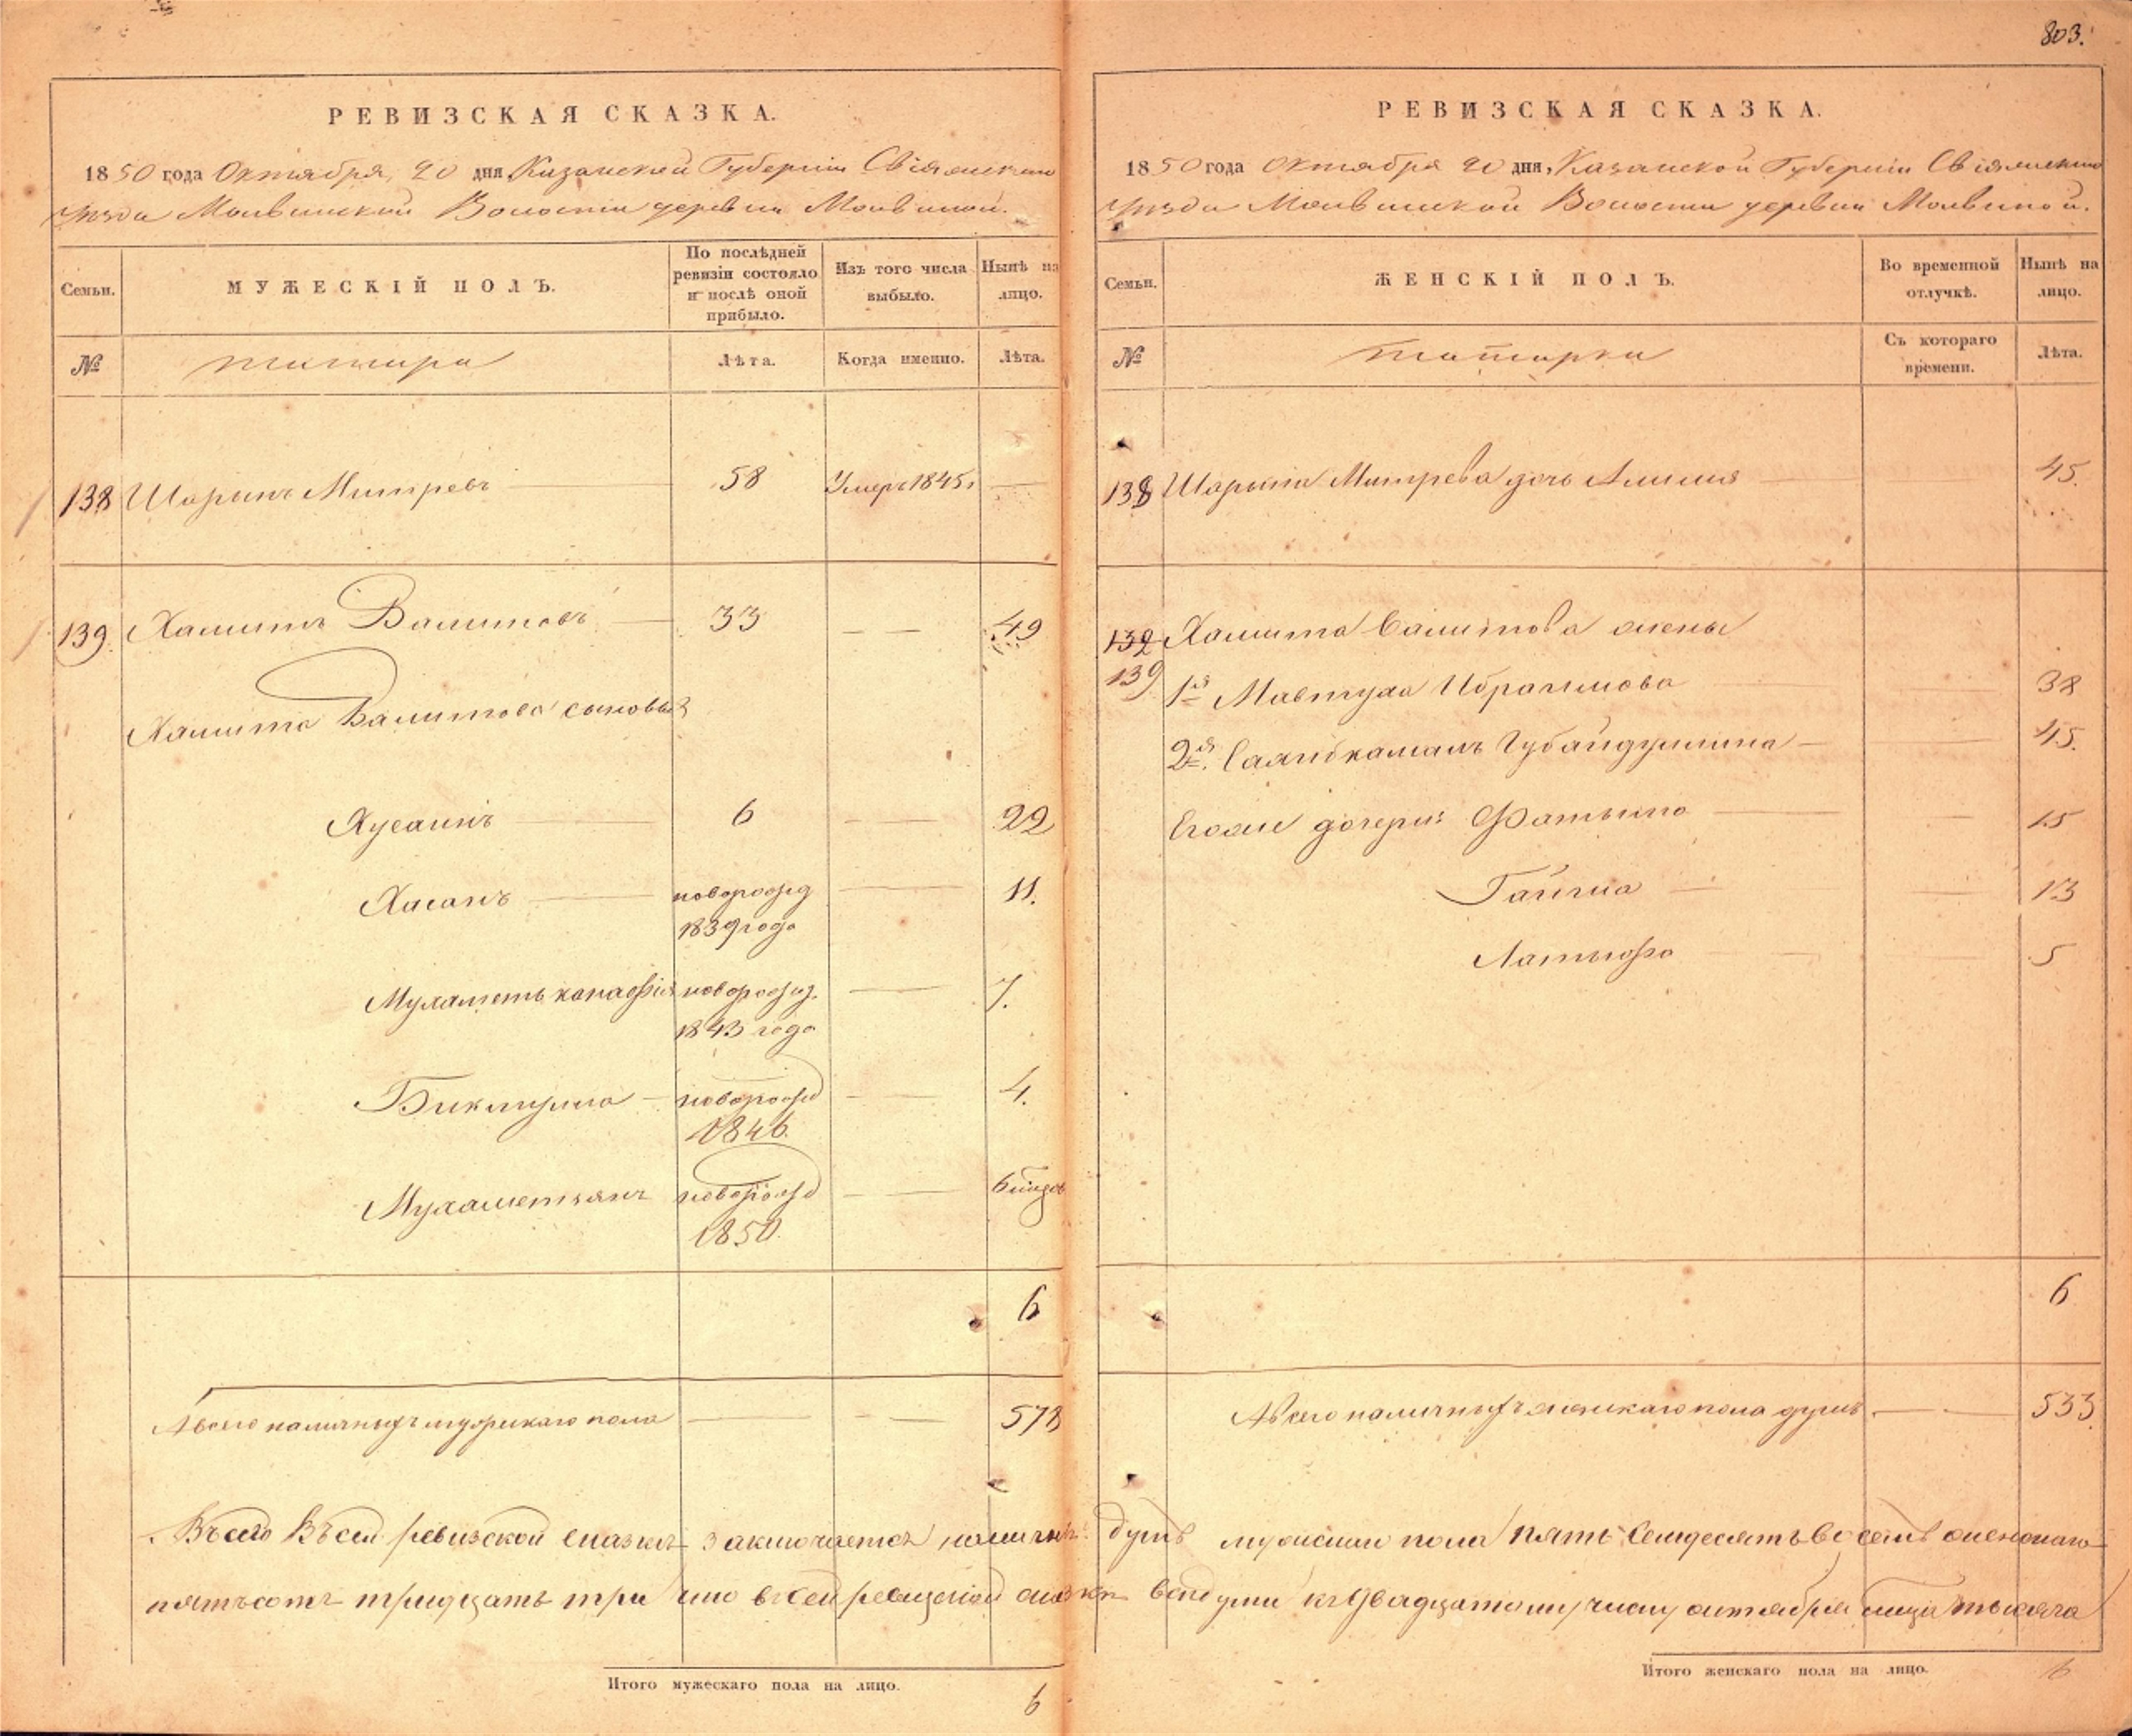 803.
РЕВИЗСКАЯ СКАЗКА.
1850 года Октября, 20 дня, Казанской Губерніи Свіяжскаго
уѣзда Молвинской Волости деревни Молвиной.
Семьи.
МУЖЕСКІЙ ПОЛЪ.
По послѣдней ревизіи состояло и послѣ оной прибыло.
Изъ того числа выбыло.
Нынѣ на лицо.
№
татара
Лѣта.
Когда именно.
Лѣта.
138 Шарыпъ Митревъ 58 Умеръ 1845
139 Хамитъ Валитовъ 33 49
Хамита Валитова сыновья
Хусаинъ 6 22
Хасанъ новорожд 11.
1839 года
Мухаметь канафія новорожд. 7.
1843 года
Биктулла новорожд 4.
1846.
Мухаметьянъ новорожд
1850.
6
А всего наличныхъ мужскаго пола 578
РЕВИЗСКАЯ СКАЗКА.
1850 года Октября 20 дня, Казанской Губерніи Свіяжскаго
уѣзда Молвинской Волости деревни Молвиной.
Семьи.
ЖЕНСКІЙ ПОЛЪ.
Во временной отлучкѣ.
Нынѣ на лицо.
№
татарки
Съ котораго времени.
Лѣта.
138 Шарыпа Митрева дочь 45.
132 Хамита Валитова жены
139 1я Мавтуха Ибрагимова 38
2я. Саяпкамалъ Губайдуллина 45.
Егоже дочери: Фатыма 15
13
Латыфа 5
6
А всего наличныхъ женскаго пола душъ 533
Всего Въ сей ревизской сказкѣ заключается наличныхъ душъ мужскаго пола пять семдесятъ восемь женскаго
пятьсотъ тридцать три что въ сей ревизской сказкѣ всѣ души къ двадцатому числу октября тысяча
Итого мужескаго пола на лицо. 6
Итого женскаго пола на лицо. 6